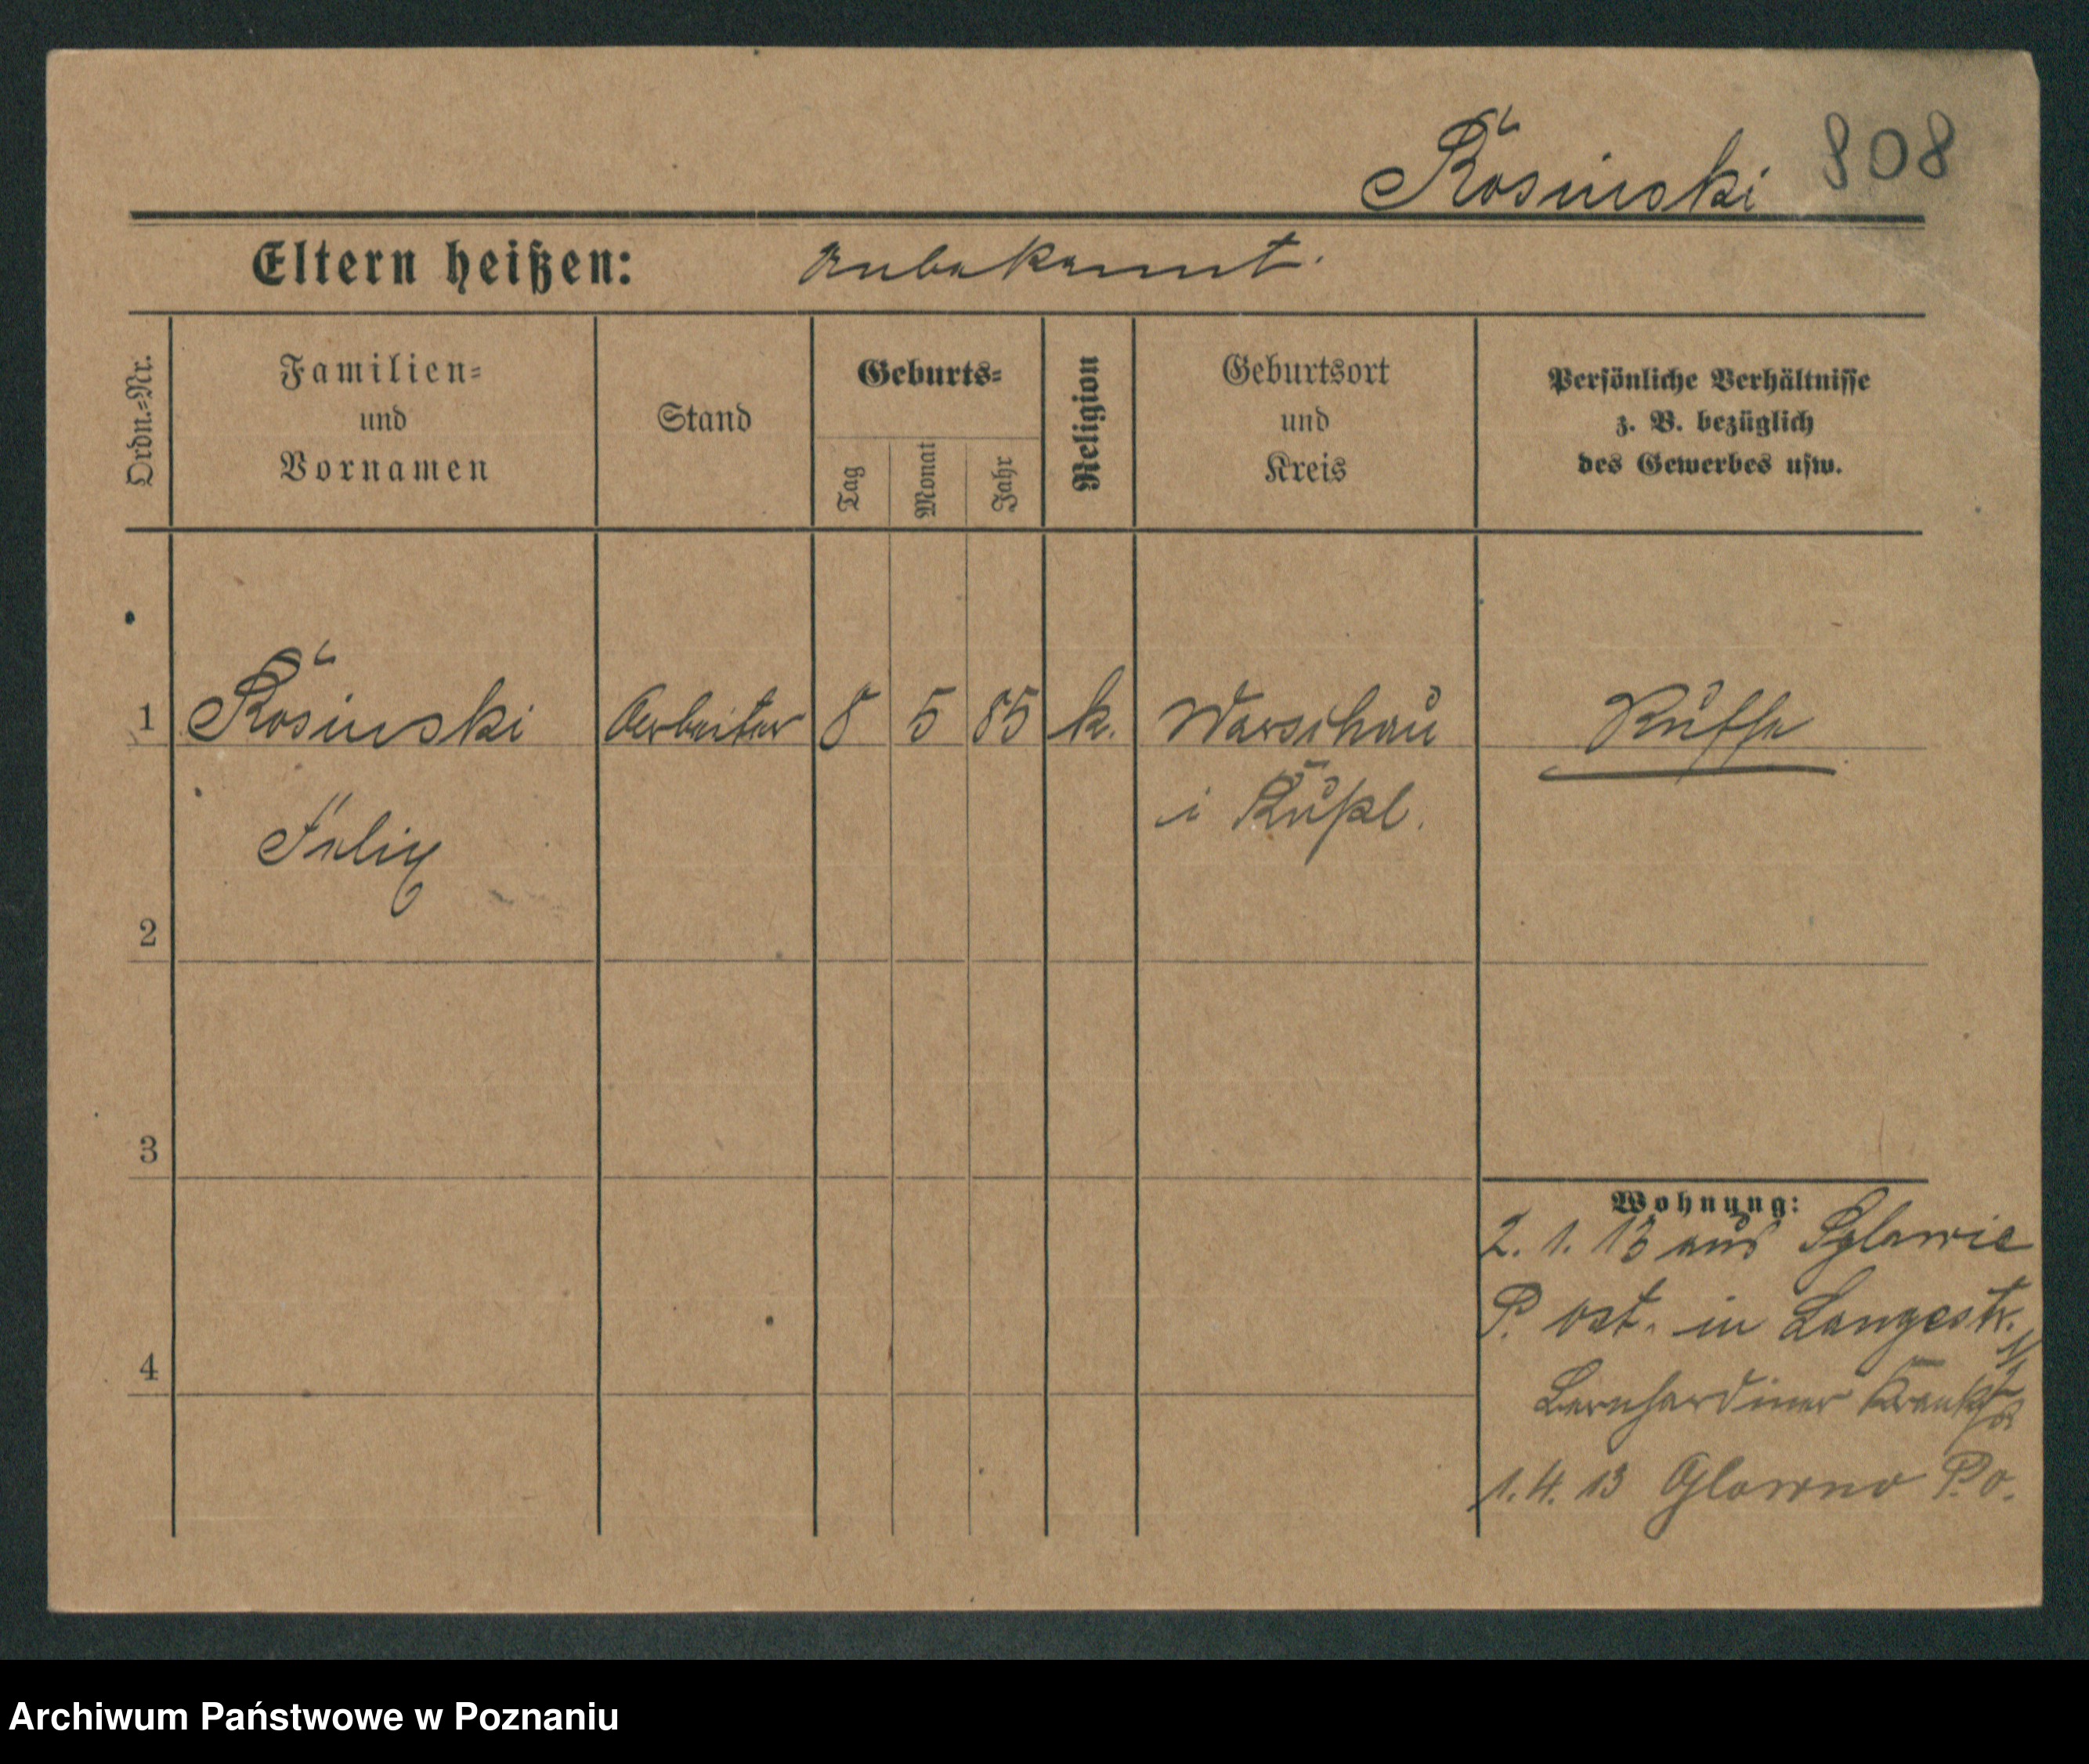 Rosinski 808
Eltern heißen: unbekannt.
Ordn.=Nr.
Familien=
und
Vornamen
Stand
Geburts=
Tag
Monat
Jahr
Religion
Geburtsort
und
Kreis
Persönliche Verhältnisse
z. B. bezüglich
des Gewerbes usw.
1 Rosinski Arbeiter 8 5 85 k. Warschau Russe
Felix i Rußl.
2
3
4
Wohnung:
2. 1. 13 aus
P. ost. in Langestr.
Bernhardiner
1. 4. 13 Glowno P. o.
Archiwum Państwowe w Poznaniu